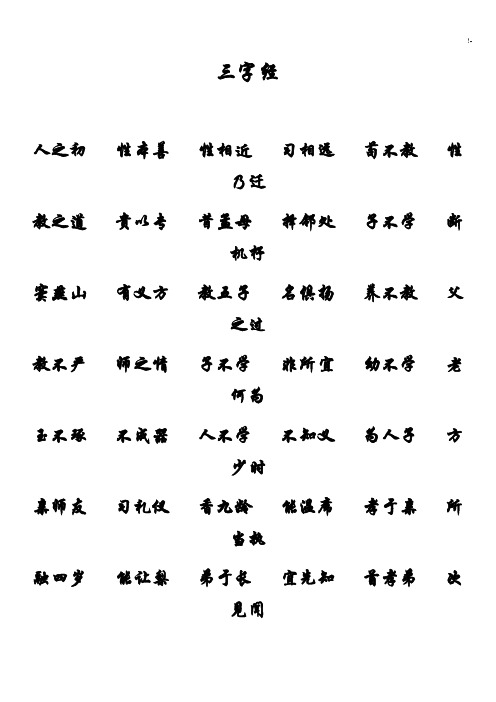 !-
三字经
人之初 性本善 性相近 习相远 苟不教 性
乃迁
教之道 貴以专 昔孟母 择邻处 子不学 断
机杼
窦燕山 有义方 教五子 名俱扬 养不教 父
之过
教不严 师之惰 子不学 非所宜 幼不学 老
何为
玉不琢 不成器 人不学 不知义 为人子 方
少时
亲师友 习礼仪 香九龄 能温席 孝于亲 所
当执
融四岁 能让梨 弟于长 宜先知 首孝弟 次
見闻